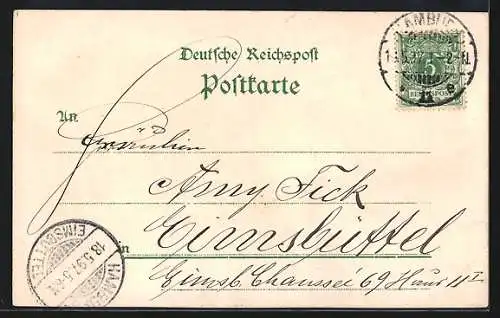 HAMBURG
Deutsche Reichspost
5
Postkarte
REICHSPOST
An
Fräulein
Amy Fick
Eimsbüttel
in
Eimsb. Chaussée 69 Haus 11 I
HAMBURG
18.5.97. 5-6N
EIMSBÜTTEL